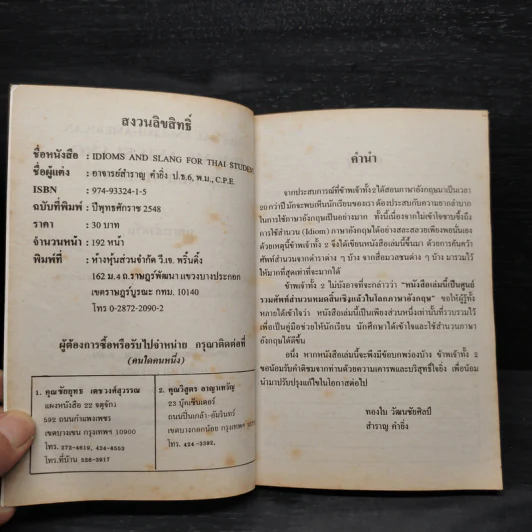 สงวนลิขสิทธิ์
ชื่อหนังสือ : IDIOMS AND SLANG FOR THAI STUDENT
ชื่อผู้แต่ง : อาจารย์สำราญ คำยิ่ง ป.ธ.6, พ.ม., C.P.E.
ISBN : 974-93324-1-5
ฉบับที่พิมพ์ : ปีพุทธศักราช 2548
ราคา : 30 บาท
จำนวนหน้า : 192 หน้า
พิมพ์ที่ : ห้างหุ้นส่วนจำกัด วี.เจ. พริ้นติ้ง
162 ม.4 ถ.ราษฎร์พัฒนา แขวงบางปะกอก
เขตราษฎร์บูรณะ กทม. 10140
โทร 0-2872-2090-2
ผู้ต้องการซื้อหรือรับไปจำหน่าย กรุณาติดต่อที่
(คนใดคนหนึ่ง)
1. คุณชัยยุทธ เตชวงศ์สุวรรณ
แผงหนังสือ 22 จตุจักร
592 ถนนกำแพงเพชร
เขตบางเขน กรุงเทพฯ 10900
โทร. 272-4619, 424-4553
โทร.ที่บ้าน 526-3917
2. คุณวิสูตร อาญาเทวัญ
23 บุ๊คเซ็นเตอร์
ถนนปิ่นเกล้า-อัมรินทร์
เขตบางกอกน้อย กรุงเทพฯ 10
โทร. 424-3392,
คำนำ
จากประสบการณ์ที่ข้าพเจ้าทั้ง 2 ได้สอนภาษาอังกฤษมาเป็นเวลา
20 กว่าปี มักจะพบเห็นนักเรียนของเรา ต้องประสบกับความยากลำบาก
ในการใช้ภาษาอังกฤษเป็นอย่างมาก ทั้งนี้เนื่องจากไม่เข้าใจซาบซึ้งถึง
การใช้สำนวน (Idiom) ภาษาอังกฤษได้อย่างสละสลวยเพียงพอนั่นเอง
ด้วยเหตุนี้ข้าพเจ้าทั้ง 2 จึงได้เขียนหนังสือเล่มนี้ขึ้นมา ด้วยการค้นคว้า
ศัพท์สำนวนจากตำราต่าง ๆ บ้าง จากสื่อมวลชนต่าง ๆ บ้าง มารวมไว้
ให้มากที่สุดเท่าที่จะมากได้
ข้าพเจ้าทั้ง 2 ไม่บังอาจที่จะกล่าวว่า "หนังสือเล่มนี้เป็นศูนย์
รวมศัพท์ที่สำนวนหมดสิ้นเชิงแล้วในโลกภาษาอังกฤษ" ขอให้ผู้รู้ทั้ง
หลายได้เข้าใจว่า หนังสือเล่มนี้เป็นเพียงส่วนหนึ่งเท่านั้นที่รวบรวมไว้
เพื่อเป็นคู่มือช่วยให้นักเรียน นักศึกษาได้เข้าใจและใช้สำนวนภาษา
อังกฤษได้ดีขึ้น
อนึ่ง หากหนังสือเล่มนี้จะพึงมีข้อบกพร่องบ้าง ข้าพเจ้าทั้ง 2
ขอน้อมรับคำติชมจากท่านด้วยความเคารพและบริสุทธิ์ใจยิ่ง เพื่อน้อม
นำมาปรับปรุงแก้ไขในโอกาสต่อไป
ทองใบ วัฒนชัยศิลป์
สำราญ คำยิ่ง